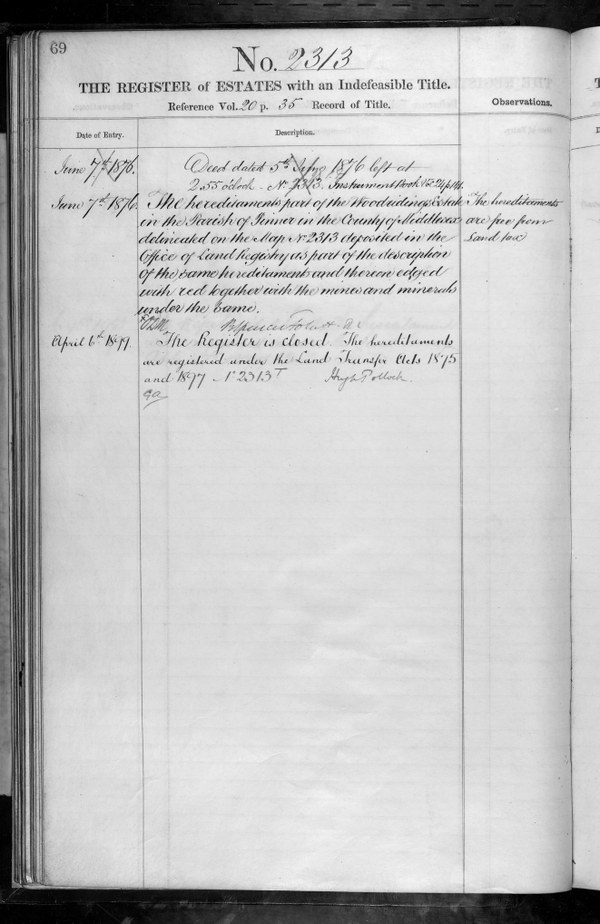 69
No. 2313
THE REGISTER of ESTATES with an Indefeasible Title.
Reference Vol. 20 p. 35 Record of Title.
Observations.
Date of Entry.
Description.
June 7th 1876.
Deed dated 5th 1876 left at
2.55 o'clock - No 2313. Instrument Book Vol. 24 p.
June 7th 1876.
The hereditaments part of the Woodridings Estate
in the Parish of Pinner in the County of Middlesex
delineated on the Map No 2313 deposited in the
Office of Land Registry as part of the description
of the same hereditaments and thereon edged
with red together with the mines and minerals
under the same.
The hereditaments
are free from
Land tax
April 6th 1899.
The Register is closed. The hereditaments
are registered under the Land Transfer Acts 1875
and 1897 - No 2313T
Hugh Pollock